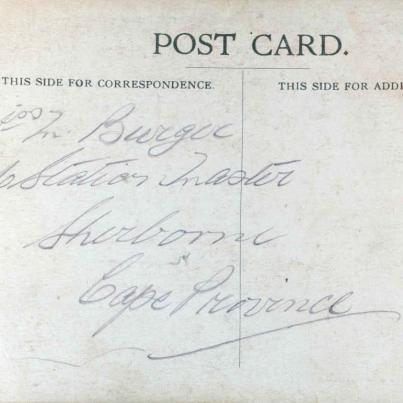 POST CARD.
THIS SIDE FOR CORRESPONDENCE. THIS SIDE FOR ADDRE
iss M. Burger
Station Master
Sherborne
Cape Province